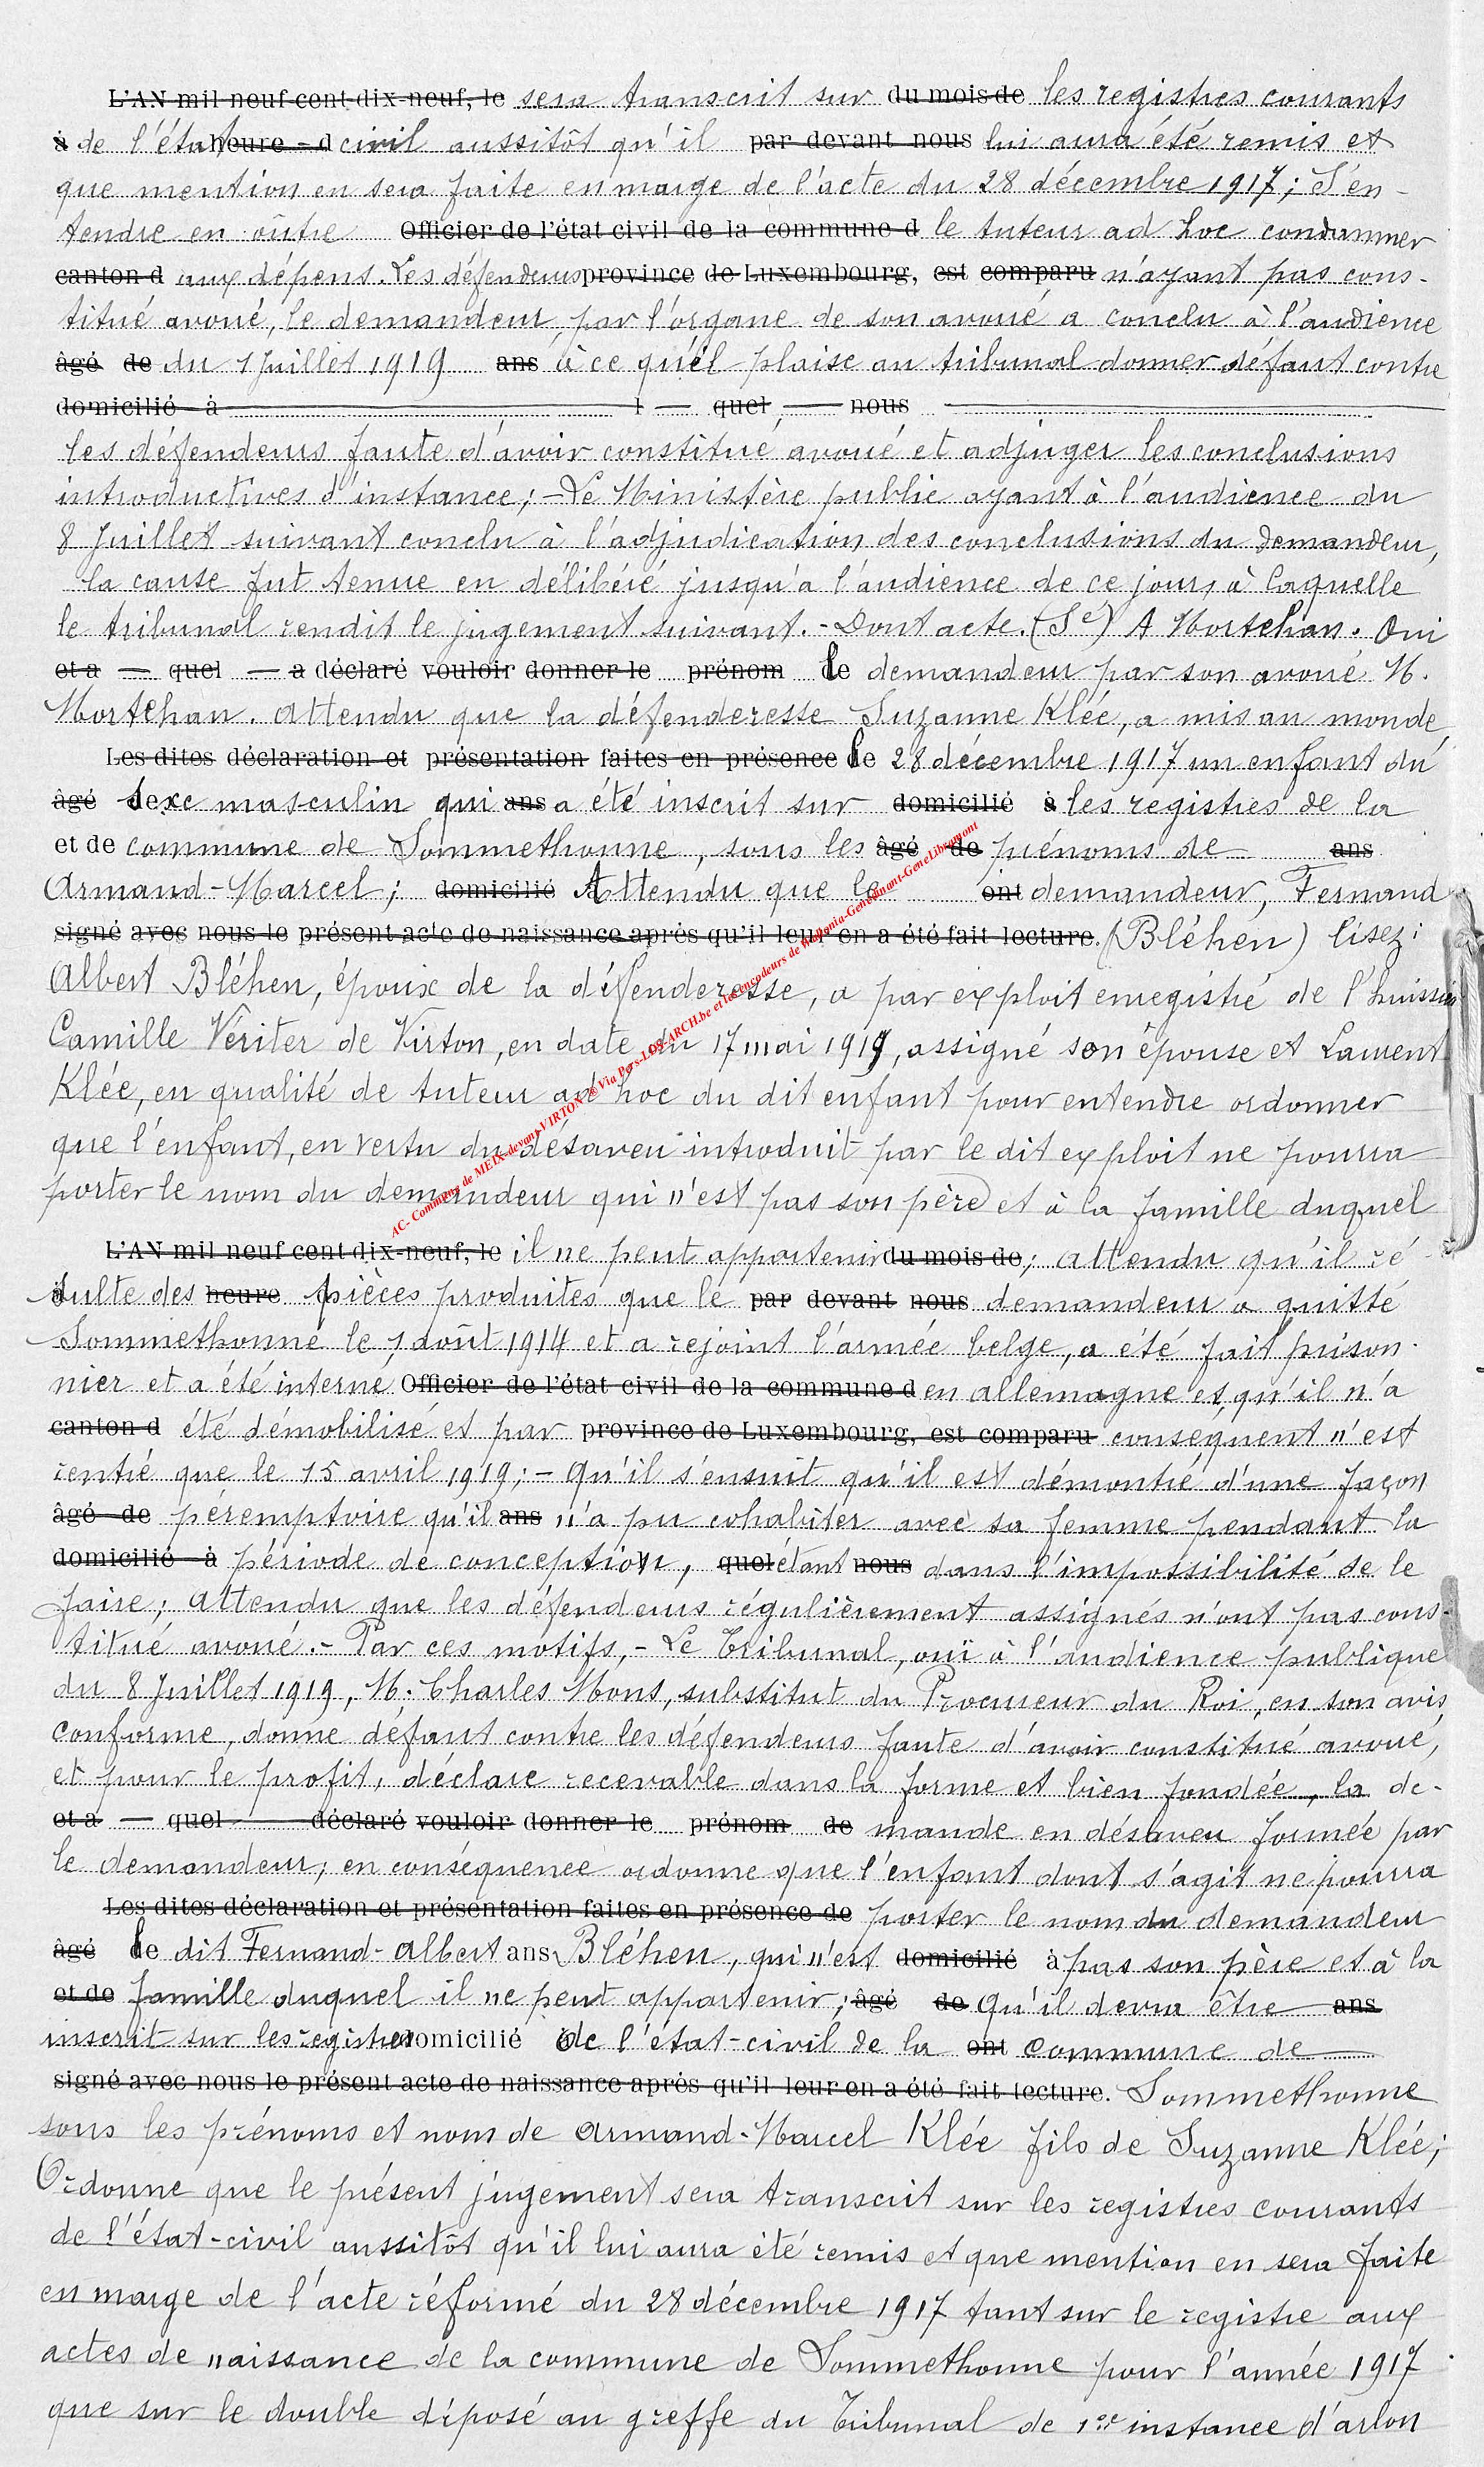 L'AN mil neuf cent dix-neuf, le sera transcrit sur du mois de les registres courants
à de l'état heure - d civil aussitôt qu'il par devant nous lui aura été remis et
que mention en sera faite en marge de l'acte du 28 décembre 1917; S'en-
tendre en oûtre Officier de l'état civil de la commune d le tuteur ad hoc condamner
canton d aux dépens. Les défendeurs province de Luxembourg, est comparu n'ayant pas cons-
titué avoué, le demandeur par l'organe de son avoué a conclu à l'audience
âgé de du 1 Juillet 1919 ans à ce qu'il plaise au tribunal donner défaut contre
domicilié à l — quel — nous
les défendeurs faute d'avoir constitué avoué et adjuger les conclusions
introductives d'instance; - Le Ministère public ayant à l'audience du
8 Juillet suivant conclu à l'adjudication des conclusions du demandeur,
la cause fut tenue en délibéré jusqu'a l'audience de ce jour, à laquelle
le tribunal rendit le jugement suivant. - Dont acte. (Sé) A Mortehan. Oui
et a — quel — a déclaré vouloir donner le prénom le demandeur par son avoué M.
Mortehan. Attendu que la défenderesse Suzanne Klée, a mis au monde
Les dites déclaration et présentation faites en présence le 28 décembre 1917 un enfant du
âgé sexe masculin qui ans a été inscrit sur domicilié à les régistres de la
et de commune de Sommethonne, sous les âgé de prénoms de ans
Armand-Marcel; domicilié Attendu que le ont demandeur, Fernand
signé avec nous le présent acte de naissance après qu'il leur en a été fait lecture. (Bléhen) lisez:
Albert Bléhen, époux de la défenderesse, a par exploit enregistré de l'huissier
Camille Vériter de Virton, en date du 17 mai 1919, assigné son épouse et Laurent
Klée, en qualité de tuteur ad hoc du dit enfant pour entendre ordonner
que l'enfant, en vertu du désaveu introduit par le dit exploit ne pourra
porter le nom du demandeur qui n'est pas son père et à la famille duquel
AC- Commune de MEIX-devant-VIRTON ® Via Pers-LDS-ARCH.be et les encodeurs de Wallonia-Genedinant-GeneLibramont
L'AN mil neuf cent dix-neuf, le il ne peut appartenir du mois de; attendu qu'il ré
sulte des heure pièces produites que le par devant nous demandeur a quitté
Sommethonne le 1 août 1914 et a rejoint l'armée belge, a été fait prison-
nier et a été interné Officier de l'état civil de la commune d en allemagne et qu'il n'a
canton d été démobilisé et par province de Luxembourg, est comparu conséquent n'est
rentré que le 15 avril 1919; - Qu'il s'ensuit qu'il est démontré d'une façon
âgé de péremptoire qu'il ans n'a pu cohabiter avec sa femme pendant la
domicilié à période de conception, quel étant nous dans l'impossibilité de le
faire; attendu que les défendeurs régulièrement assignés n'ont pas cons-
titué avoué. - Par ces motifs, - Le Tribunal, ouï à l'audience publique
du 8 Juillet 1919, M. Charles Mons, substitut du Procureur du Roi, en son avis
conforme, donne défaut contre les défendeurs faute d'avoir constitué avoué,
et pour le profit, déclare recevable dans la forme et bien fondée, la de-
et a — quel — déclaré vouloir donner le prénom de mande en désaveu formée par
le demandeur; en conséquence ordonne que l'enfant dont s'agit ne pourra
Les dites déclaration et présentation faites en présence de porter le nom du demandeur
âgé le dit Fernand-Albert ans Bléhen, qui n'est domicilié à pas son père et à la
et de famille duquel il ne peut appartenir; âgé de Qu'il devra être ans
inscrit sur les registres domicilié de l'état-civil de la ont commune de
signé avec nous le présent acte de naissance après qu'il leur en a été fait lecture. Sommethonne
sous les prénoms et nom de Armand-Marcel Klée fils de Suzanne Klée;
Ordonne que le présent jugement sera transcrit sur les registres courants
de l'état-civil aussitôt qu'il lui aura été remis et que mention en sera faite
en marge de l'acte réformé du 28 décembre 1917 tant sur le registre aux
actes de naissance de la commune de Sommethonne pour l'année 1917
que sur le double déposé au greffe du Tribunal de 1ère instance d'arlon